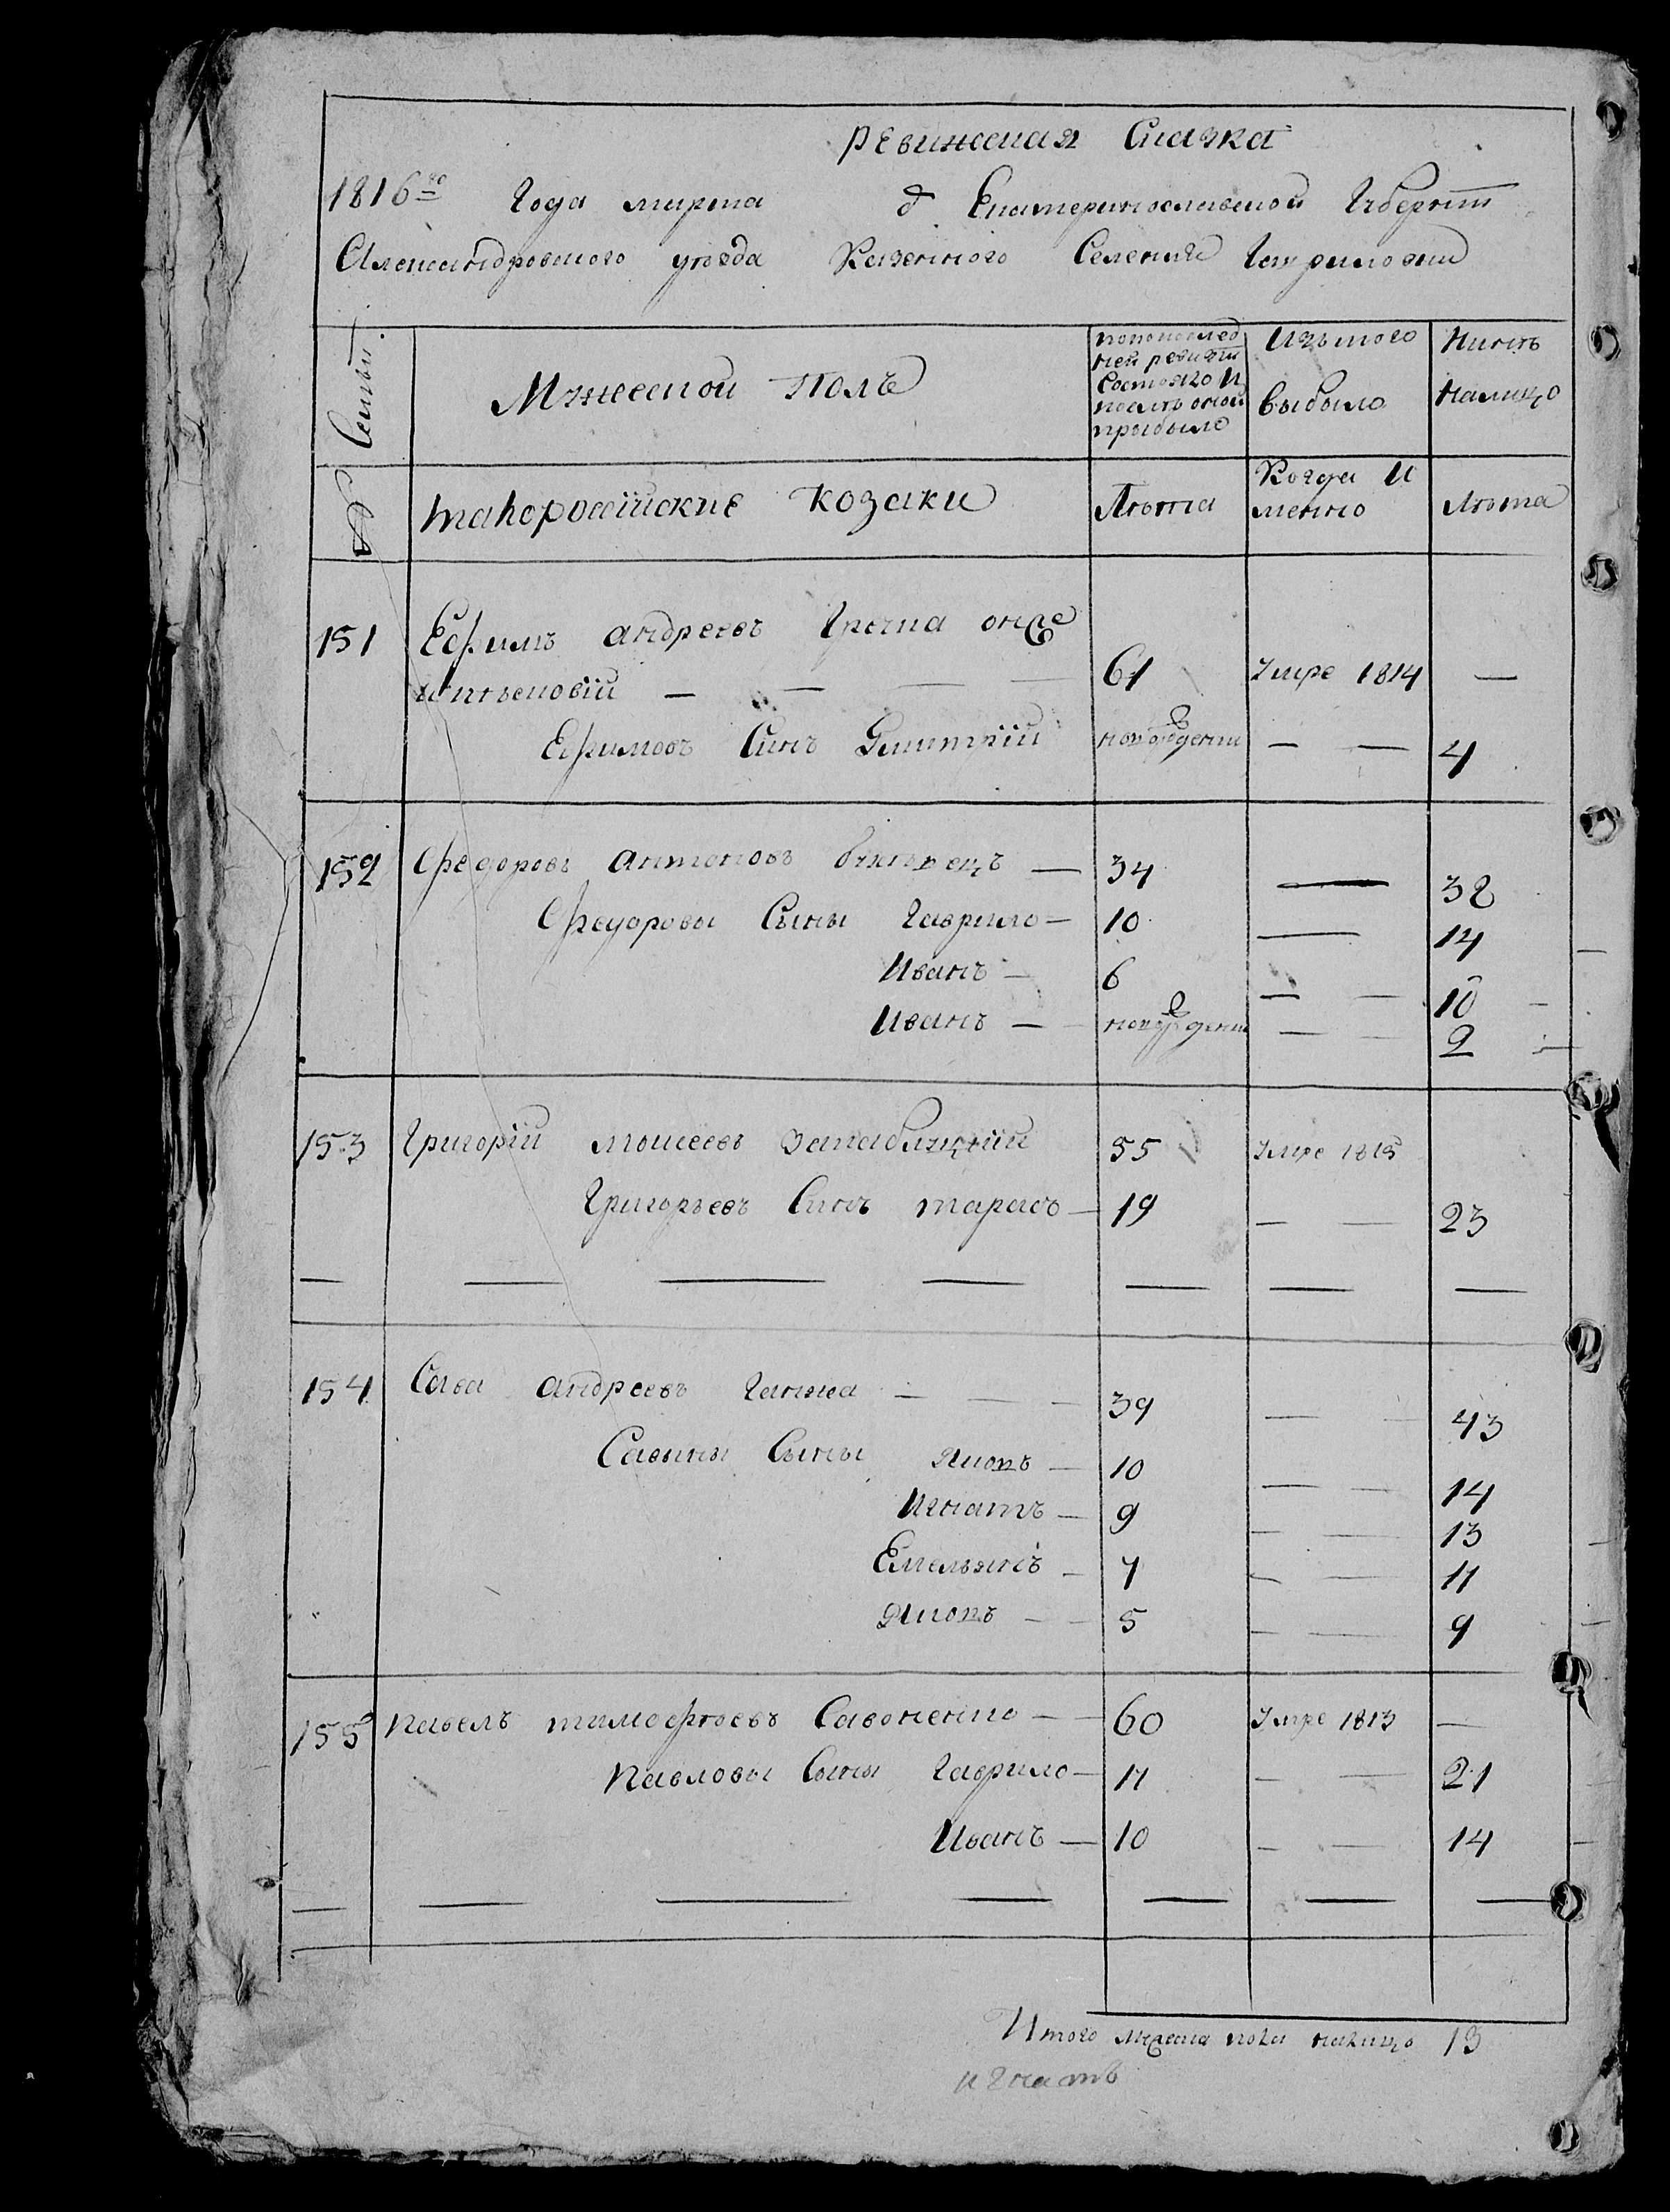 ревижская Сказка
1816го Года марта д Екатеринославской Губернии
Александровского уезда Казенного Селения Гавриловки
Семьи
Мужеской Полъ
попослед
ней ревизiи
Состояло И
послѣ оной
прибыло
Изътого
выбыло
Нынѣ
налицо
№
малоросiйские Козаки
Лѣта
Когда И
менно
Лѣта
151 Ефимъ андреевъ онже
61 Умре 1814 —
Ефимовъ Синъ Дмитрiй новорожденни — — 4
152 Федоровъ антоновъ — 34 — 38
Федоровы Сыны Гаврило — 10 — 14
Иванъ — 6 — — 10
Иванъ — новорожденни — — 2
153 Григорiй моисеевъ 55 Умре 1815
Григорьевъ Синъ тарасъ — 19 — — 23
154 Сава андреевъ Ганжа — — — 39 — — 43
Савины Сыны Яковъ — 10 — — 14
Игнатъ — 9 — — 13
Емельянъ — 7 — — 11
Яковъ — — 5 — — 9
155 Павелъ тимофѣевъ Савоненко — — 60 Умре 1813 —
Павловы Сыны Гаврило — 17 — — 21
Иванъ — 10 — — 14
Итого мужеска пола налицо 13
игнатъ